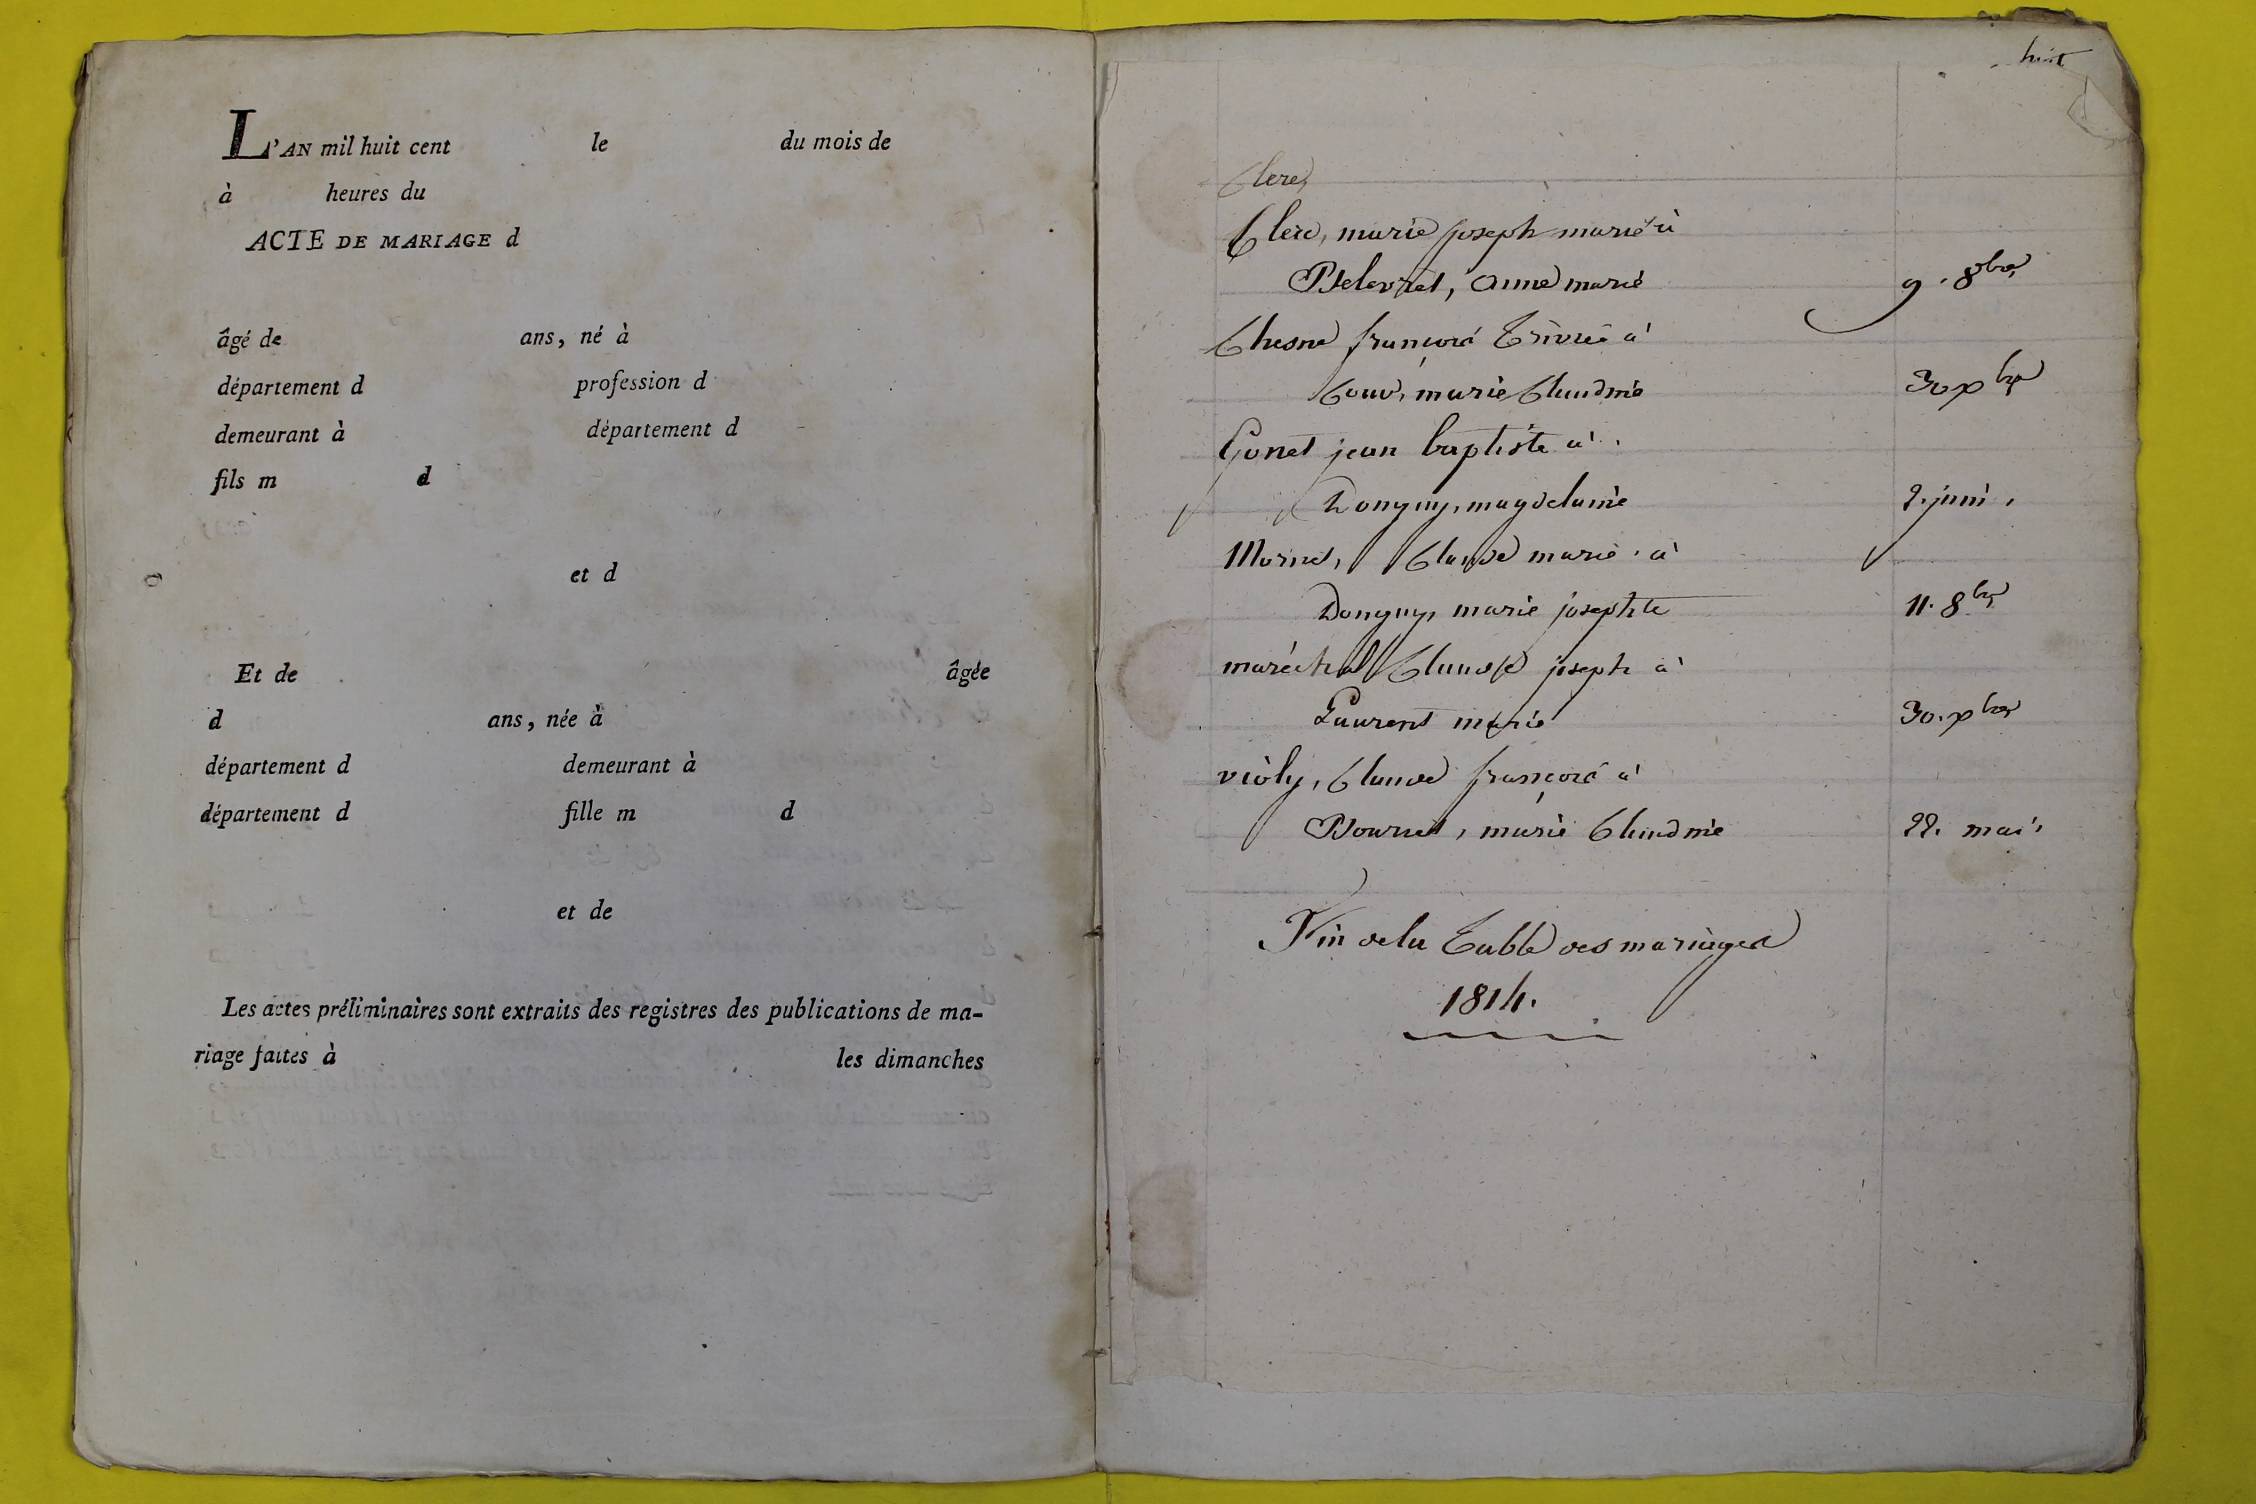 L'AN mil huit cent le du mois de
à heures du
ACTE DE MARIAGE d
âgé de ans, né à
département d profession d
demeurant à département d
fils m d
et d
Et de âgée
d ans, née à
département d demeurant à
département d fille m d
et de
Les actes préliminaires sont extraits des registres des publications de ma-
riage faites à les dimanches
huit
Clerc,
Clerc, marie joseph marié à
Belevret, anne marie 9. 8bre
Chesne françois à
marie Claudine 30 xbre
Gonet jean baptiste à
Donguy, magdelaine 2. juin.
Mornet, Claude marie à
Donguy, marie josephte 11. 8bre
maréchal Claude joseph à
Laurent marie 30. xbre
violy, Claude françois à
Bourret, marie Claudine 22. mai,
Fin de la Table des mariages
1814.